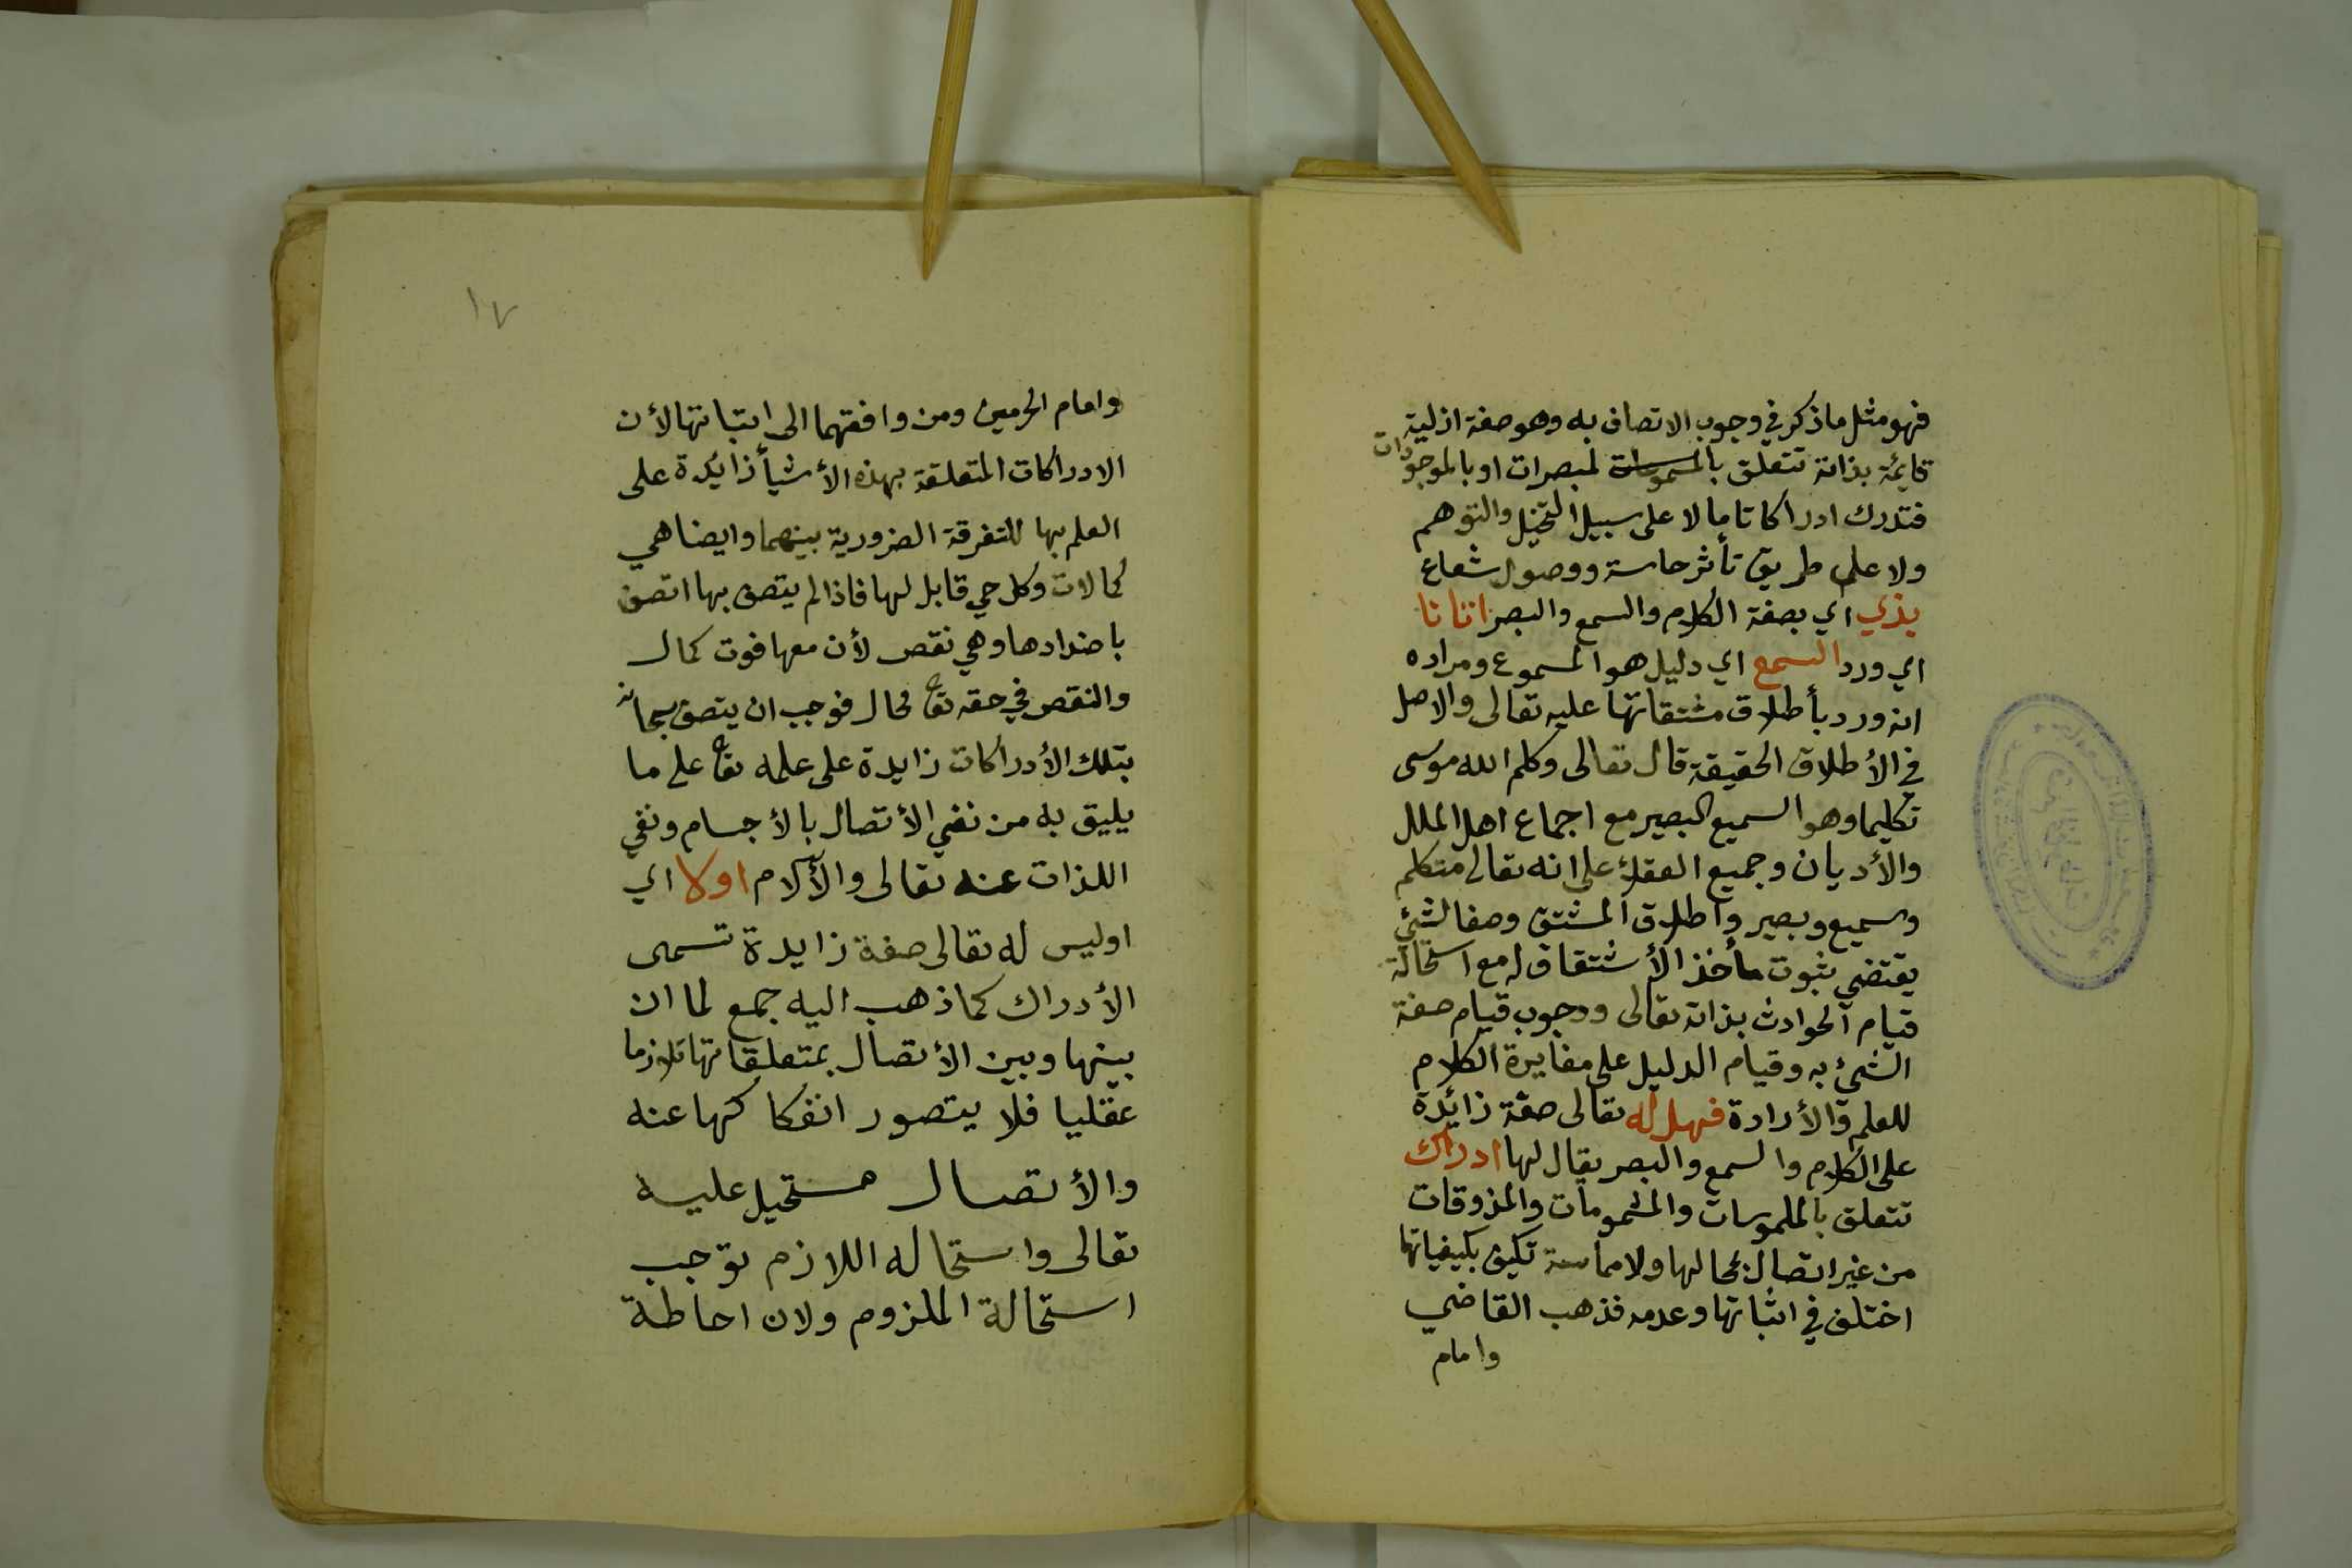 فهو مثل ما ذكر في وجوب الاتصاف به وهو صفة ازلية
قايمة بذاته تتعلق بالمسموعات لمبصرات او بالموجودات
فتدرك ادراكا تاما لا على سبيل التخيل والتوهم
ولا على طريق تأثر حاسة ووصول شعاع
بذي اي بصفة الكلام والسمع والبصر اتانا
اي ورد السمع اي دليل هو المسموع ومراده
انه ورد بأطلاق مشتقاتها عليه تعالى والاصل
في الأطلاق الحقيقة قال تعالى وكلم الله موسى
تكليما وهو السميع البصير مع اجماع اهل الملل
والأديان وجميع العقلاء على انه تعالى متكلم
وسميع وبصير واطلاق المشتق وصفا لشئ
يقتضي ثبوت مأخذ الأشتقاق له مع استحالة
قيام الحوادث بذاته تعالى ووجوب قيام صفة
الشئ به وقيام الدليل على مغايرة الكلام
للعلم والأرادة فهل له تعالى صفة زائدة
على الكلام والسمع والبصر يقال لها ادراك
تتعلق بالملموسات والمشمومات والمذوقات
من غير اتصال بمحالها ولا مماسة تكيف بكيفياتها
اختلف في اثباتها وعدمه فذهب القاضي
وامام
١٧
وامام الحرمين ومن وافقهما الى اثباتها لأن
الادراكات المتعلقة بهذه الأشيأ زايدة على
العلم بها للتفرقة الضرورية بينهما وايضا هي
كمالات وكل حي قابل لها فاذا لم يتصف بها اتصف
باضدادها وهي نقص لأن معها فوت كمال
والنقص في حقه تع محال فوجب ان يتصف سبحانه
بتلك الأدراكات زايدة على علمه تع على ما
يليق به من نفي الأتصال بالأجسام ونفي
اللذات عنه تعالى والألام اولا اي
اوليس له تعالى صفة زايدة تسمى
الأدراك كما ذهب اليه جمع لما ان
بينها وبين الأتصال بمتعلقاتها تلازما
عقليا فلا يتصور انفكاكها عنه
والأتصال مستحيل عليه
تعالى واستحاله اللازم توجب
استحالة الملزوم ولان احاطة